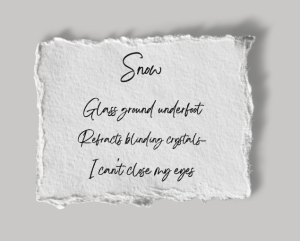 Snow
Glass ground underfoot
Refracts blinding crystals—
I can't close my eyes